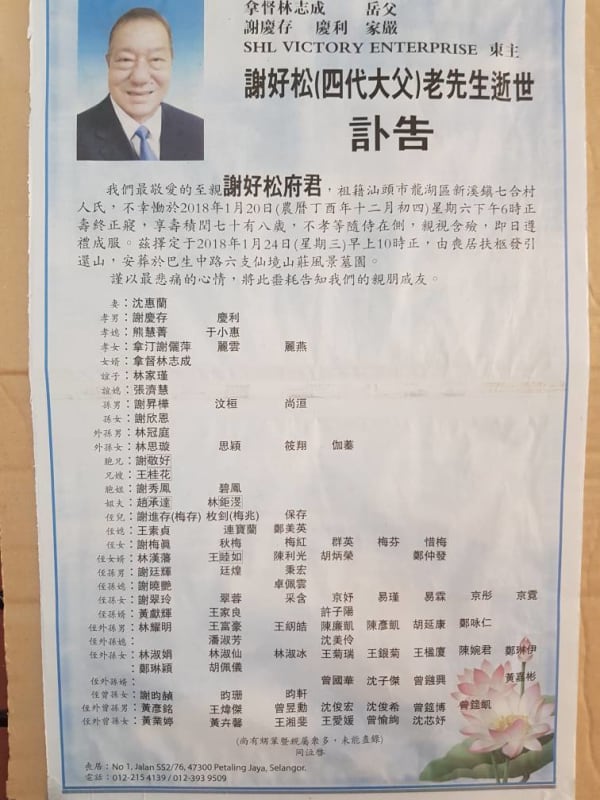 拿督林志成 岳父
謝慶存 慶利 家嚴
SHL VICTORY ENTERPRISE 東主
謝好松(四代大父)老先生逝世
訃告
我們最敬愛的至親謝好松府君，祖籍汕頭市龍湖區新溪鎮七合村
人民，不幸慟於2018年1月20日(農曆丁酉年十二月初四)星期六下午6時正
壽終正寢，享壽積閏七十有八歲，不孝等隨侍在側，親視含殮，即日遵
禮成服。茲擇定于2018年1月24日(星期三)早上10時正，由喪居扶柩發引
還山，安葬於巴生中路六支仙境山莊風景墓園。
謹以最悲痛的心情，將此噩耗告知我們的親朋戚友。
妻：沈惠蘭
孝男：謝慶存 慶利
孝媳：熊慧菁 于小惠
孝女：拿汀謝儷萍 麗雲 麗燕
女婿：拿督林志成
誼子：林家瑾
誼媳：張濟慧
孫男：謝昇樺 汶桓 尚洹
孫女：謝欣恩
外孫男：林冠庭
外孫女：林思璇 思穎 筱翔 伽蓁
胞兄：謝敬好
兄嫂：王桂花
胞姐：謝秀鳳 碧鳳
姐夫：趙承達 林鉅浸
侄兒：謝進存(梅存) 枚釗(梅兆) 保存
侄媳：王素貞 連寶蘭 鄭美英
侄女：謝梅眞 秋梅 梅紅 群英 梅芬 惜梅
侄女婿：林漢藩 王睦如 陳利光 胡炳榮 鄭仲發
侄孫男：謝廷輝 廷煌 秉宏
侄孫媳：謝曉艷 卓佩雲
侄孫女：謝翠玲 翠蓉 采含 京妤 易瑾 易霖 京彤 京霓
侄孫婿：黃獻輝 王家良 許子陽
侄外孫男：林耀明 王富豪 王紉皓 陳廉凱 陳彥凱 胡延康 鄭咏仁
侄外孫媳： 潘淑芳 沈美伶
侄外孫女：林淑娟 林淑仙 林淑冰 王菊瑞 王銀菊 王楹廈 陳婉君 鄭琳伊
鄭琳穎 胡佩儀
侄外孫婿： 曾國華 沈子傑 曾鏹興 黃嘉彬
侄曾孫女：謝昀頳 昀珊 昀軒
侄外曾孫男：黃彥銘 王煒傑 曾昱勳 沈俊宏 沈俊希 曾鎧博 曾鎧凱
侄外曾孫女：黃業婷 黃卉馨 王湘斐 王愛媛 曾愉絢 沈芯妤
(尚有姻葉暨親屬衆多，未能盡錄)
同泣啓
喪居：No 1, Jalan SS2/76, 47300 Petaling Jaya, Selangor.
電話：012-215 4139 / 012-393 9509